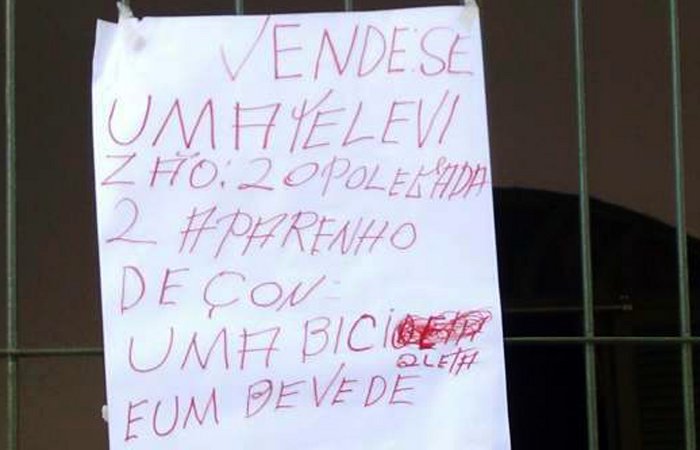 VENDE:SE
UMA TELEVI
ZÃO: 20 POLEGADA
2 APARENHO
DE ÇON=
UMA BICI
QLETA
E UM DEVEDE